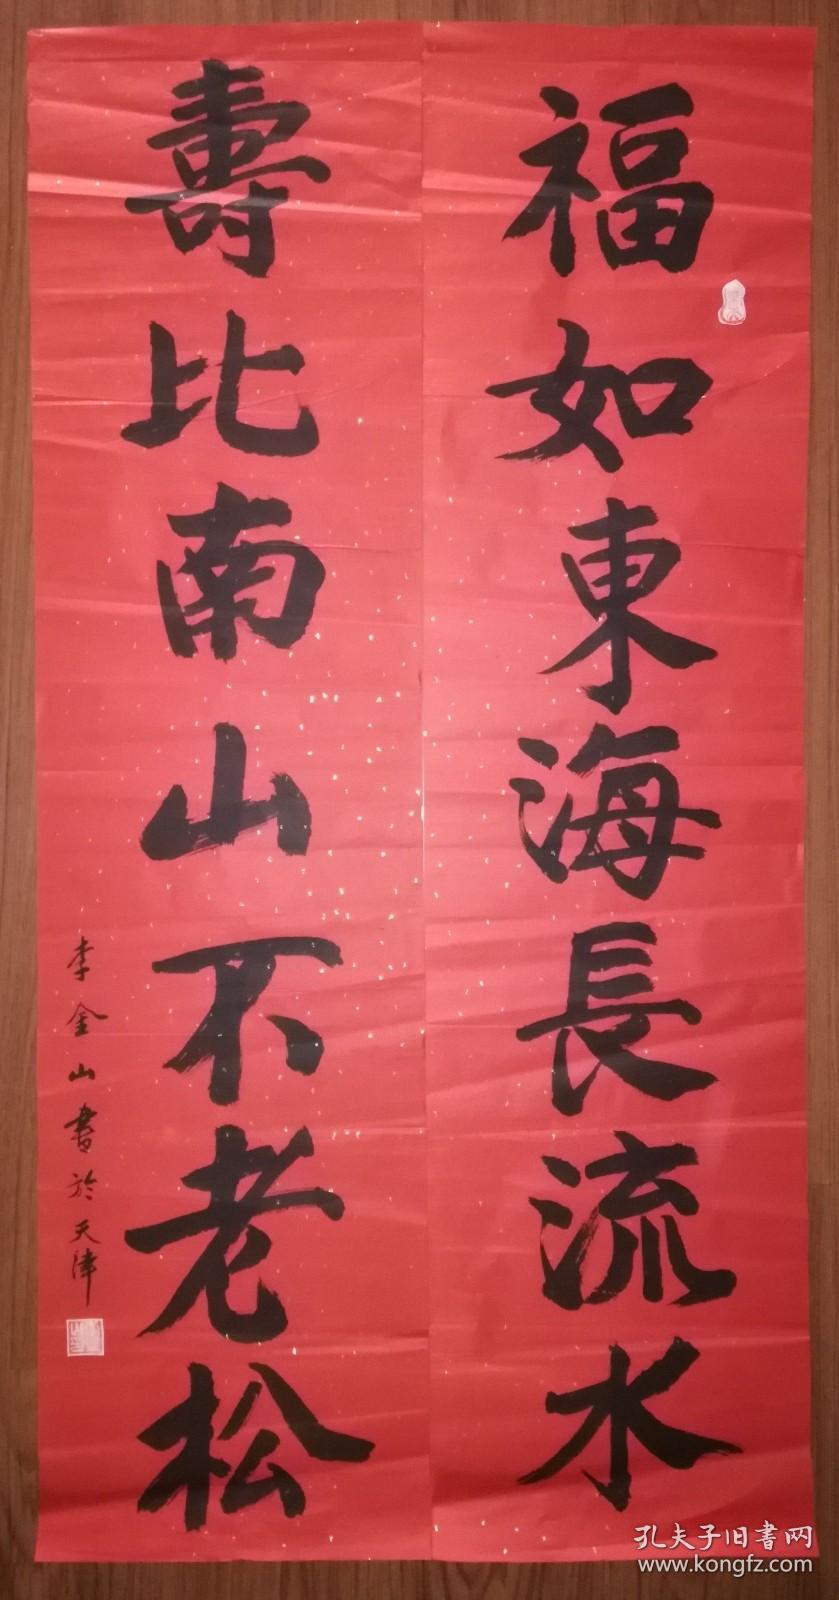 福如東海長流水
壽比南山不老松
李金山書於天津
孔夫子旧書网
www.kongfz.com